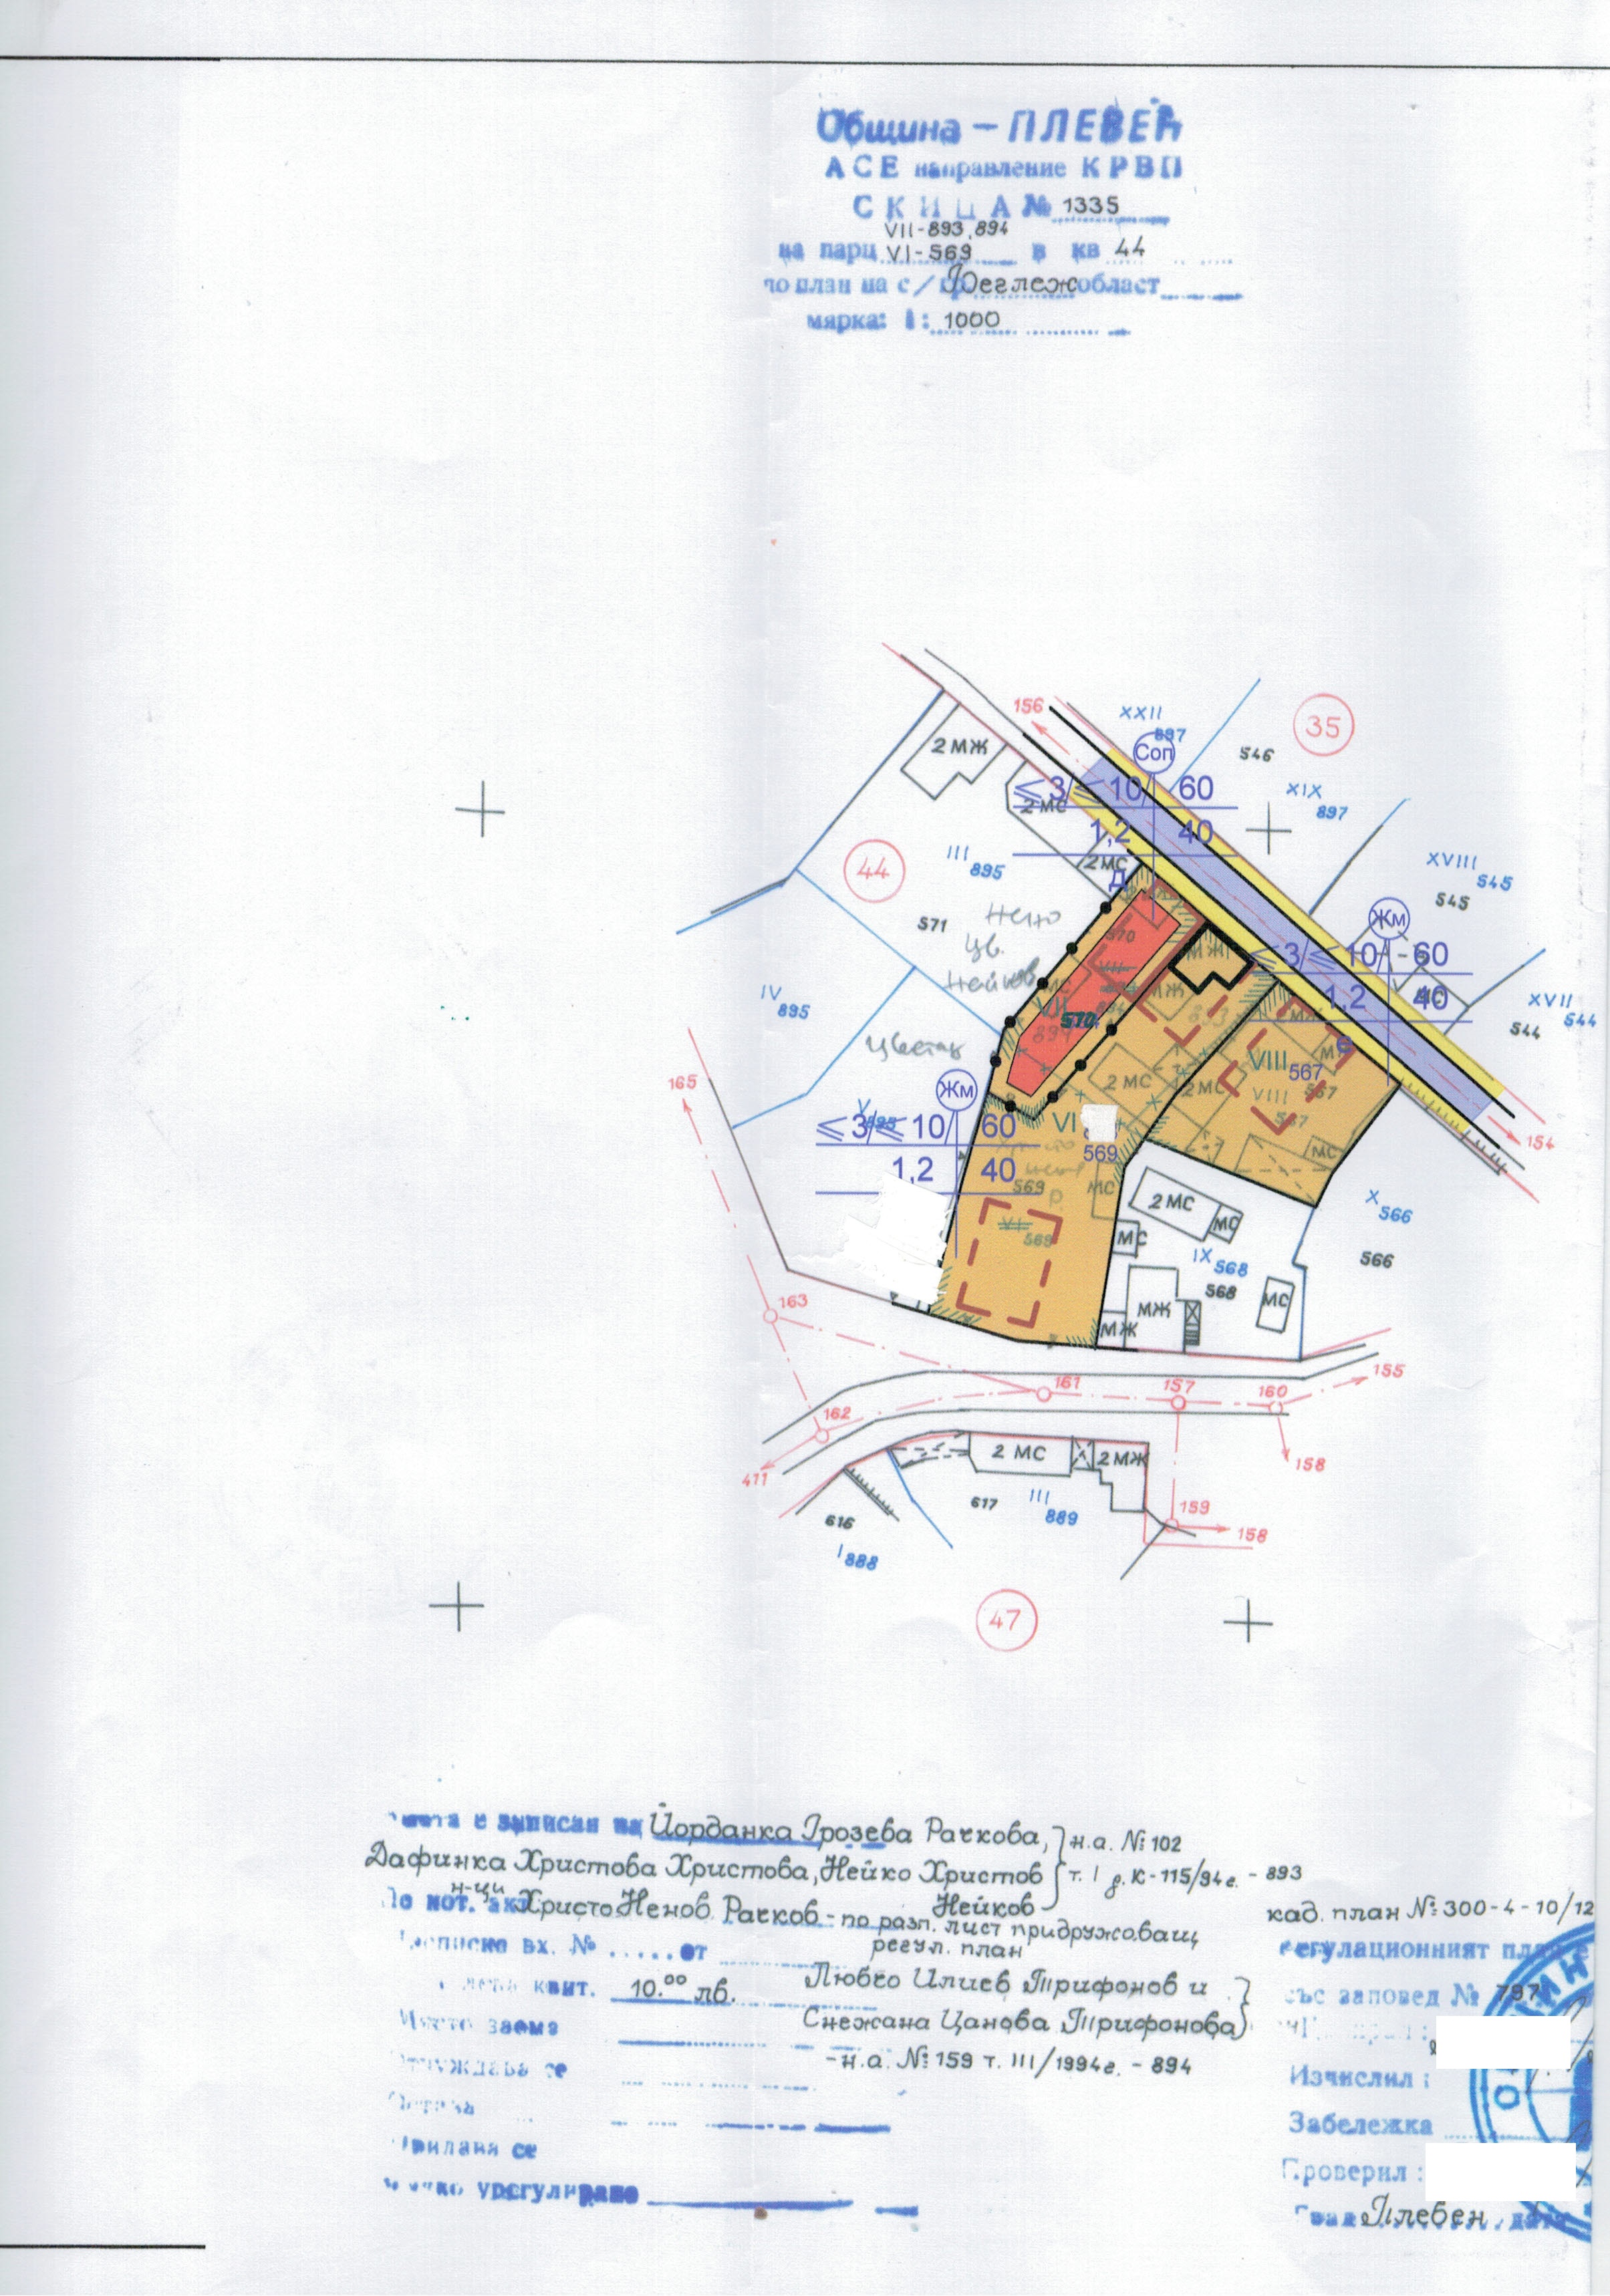 Община - ПЛЕВЕН
АСЕ направление КРВП
СКИЦА № 1335
VII-893,894
на парц VI-569 в кв 44
по план на с/гр Беглеж област
мярка: 1: 1000
156
XXII
897
35
Соп
546
2 МЖ
≤3/≤10 60
XIX
897
2 МС
1,2 40
44
III
895
2 МС
Д
XVIII
545
545
571
Нено
Цв.
Нейков
570
Жм
≤3/≤10 60
МЖ
МС
МЖ
1,2 40
МС
IV
895
VII
570
XVII
544
544
894
893
2 МЖ
Цветан
VIII
567
165
Жм
2 МС
2 МС
VIII
567
567
V
895
≤3/≤10 60
VI
154
1,2 40
569
МС
569
МС
X
566
VI
569
2 МС
МС
МС
IX
568
566
568
МС
163
МЖ
МЖ
155
161
157
160
162
411
2 МС
2 МЖ
158
617
III
889
159
158
616
I
888
47
е записан на Йорданка Грозева Рачкова, н.а. №102
Дафинка Христова Христова, Нейко Христов т. I д. К-115/94г. - 893
н-ци
По нот. акт Христо Ненов Рачков - Нейков
по разп. лист придружаващ
регул. план
кад. план № 300-4-10/12
вх. № ..... от
регулационният план е
квит. 10.00 лв.
Любчо Илиев Трифонов и
със заповед № 797
Място заема
Снежана Цанова Трифонова
- н.а. № 159 т. III/1994г. - 894
Отчуждава се
Изчислил :
Остава
Забележка
Придава се
Проверил :
урегулирано
Плевен
дата